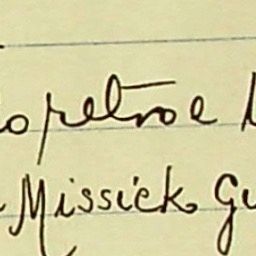 opetroe
Missick Gu